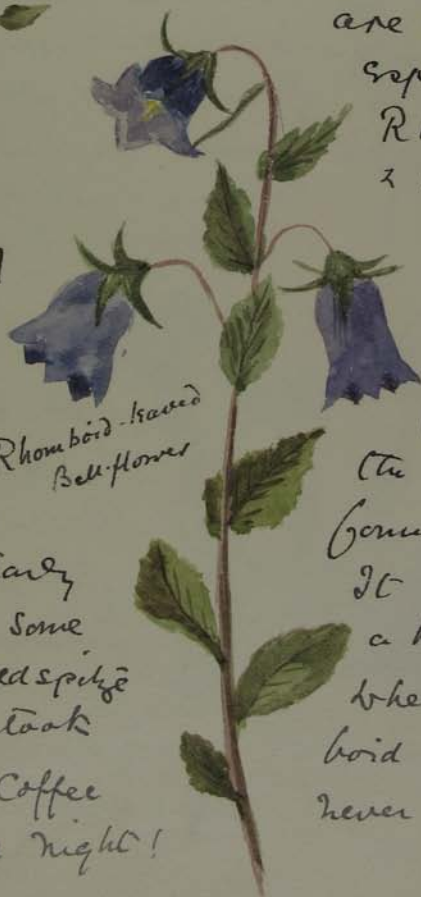 are
Rhomboid-leaved
Bell-flower
early
some
took
Coffee
night!
It
a
whe
boid
never